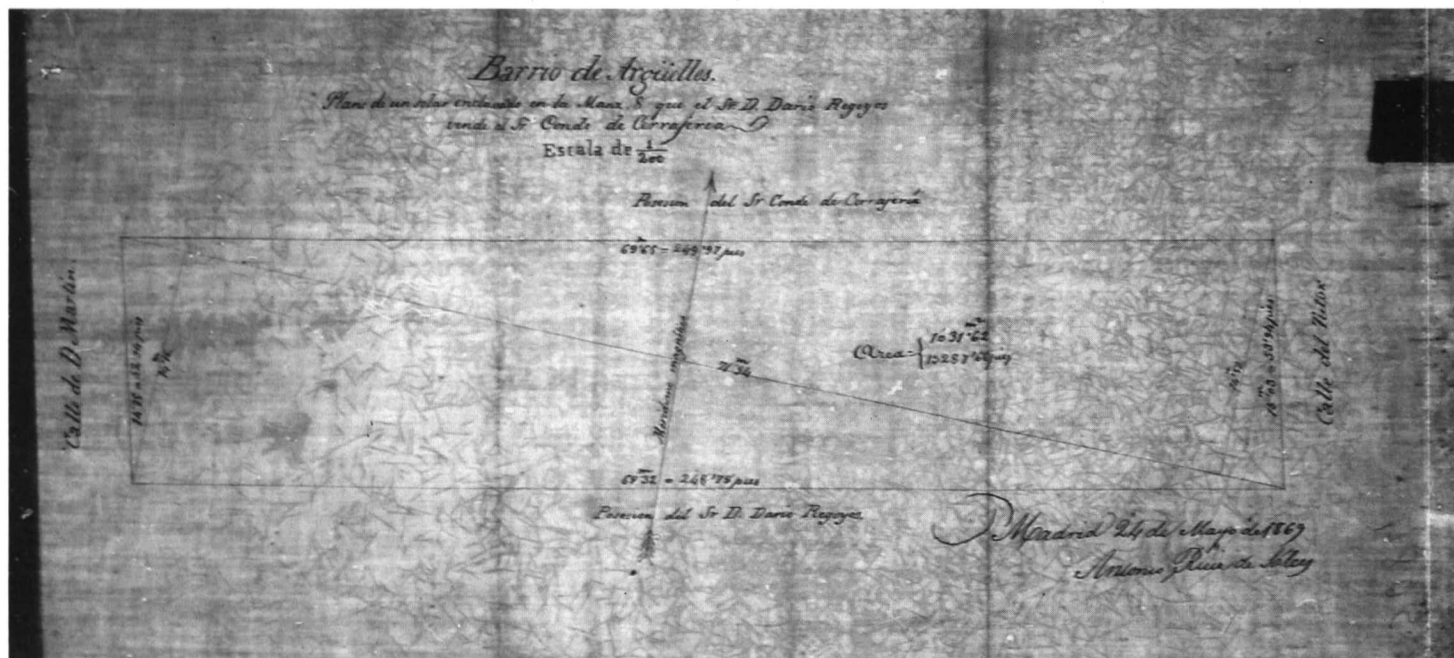 Barrio de Argüelles.
Plano de un solar enclavado en la Manz. 8 que el Sr D. Dario Regoyos
vende al Sr Conde de Cerrajeria
Escala de 1/200
Posesion del Sr Conde de Cerrajeria
69'65 = 249'97 pies
Calle de D. Martin.
Meridiana magnetica
Area = { 1031'62 m²
Calle del Rutor
69'32 = 248'78 pies
Posesion del Sr D. Dario Regoyos
Madrid 24 de Mayo de 1869
Antonio Ruiz de